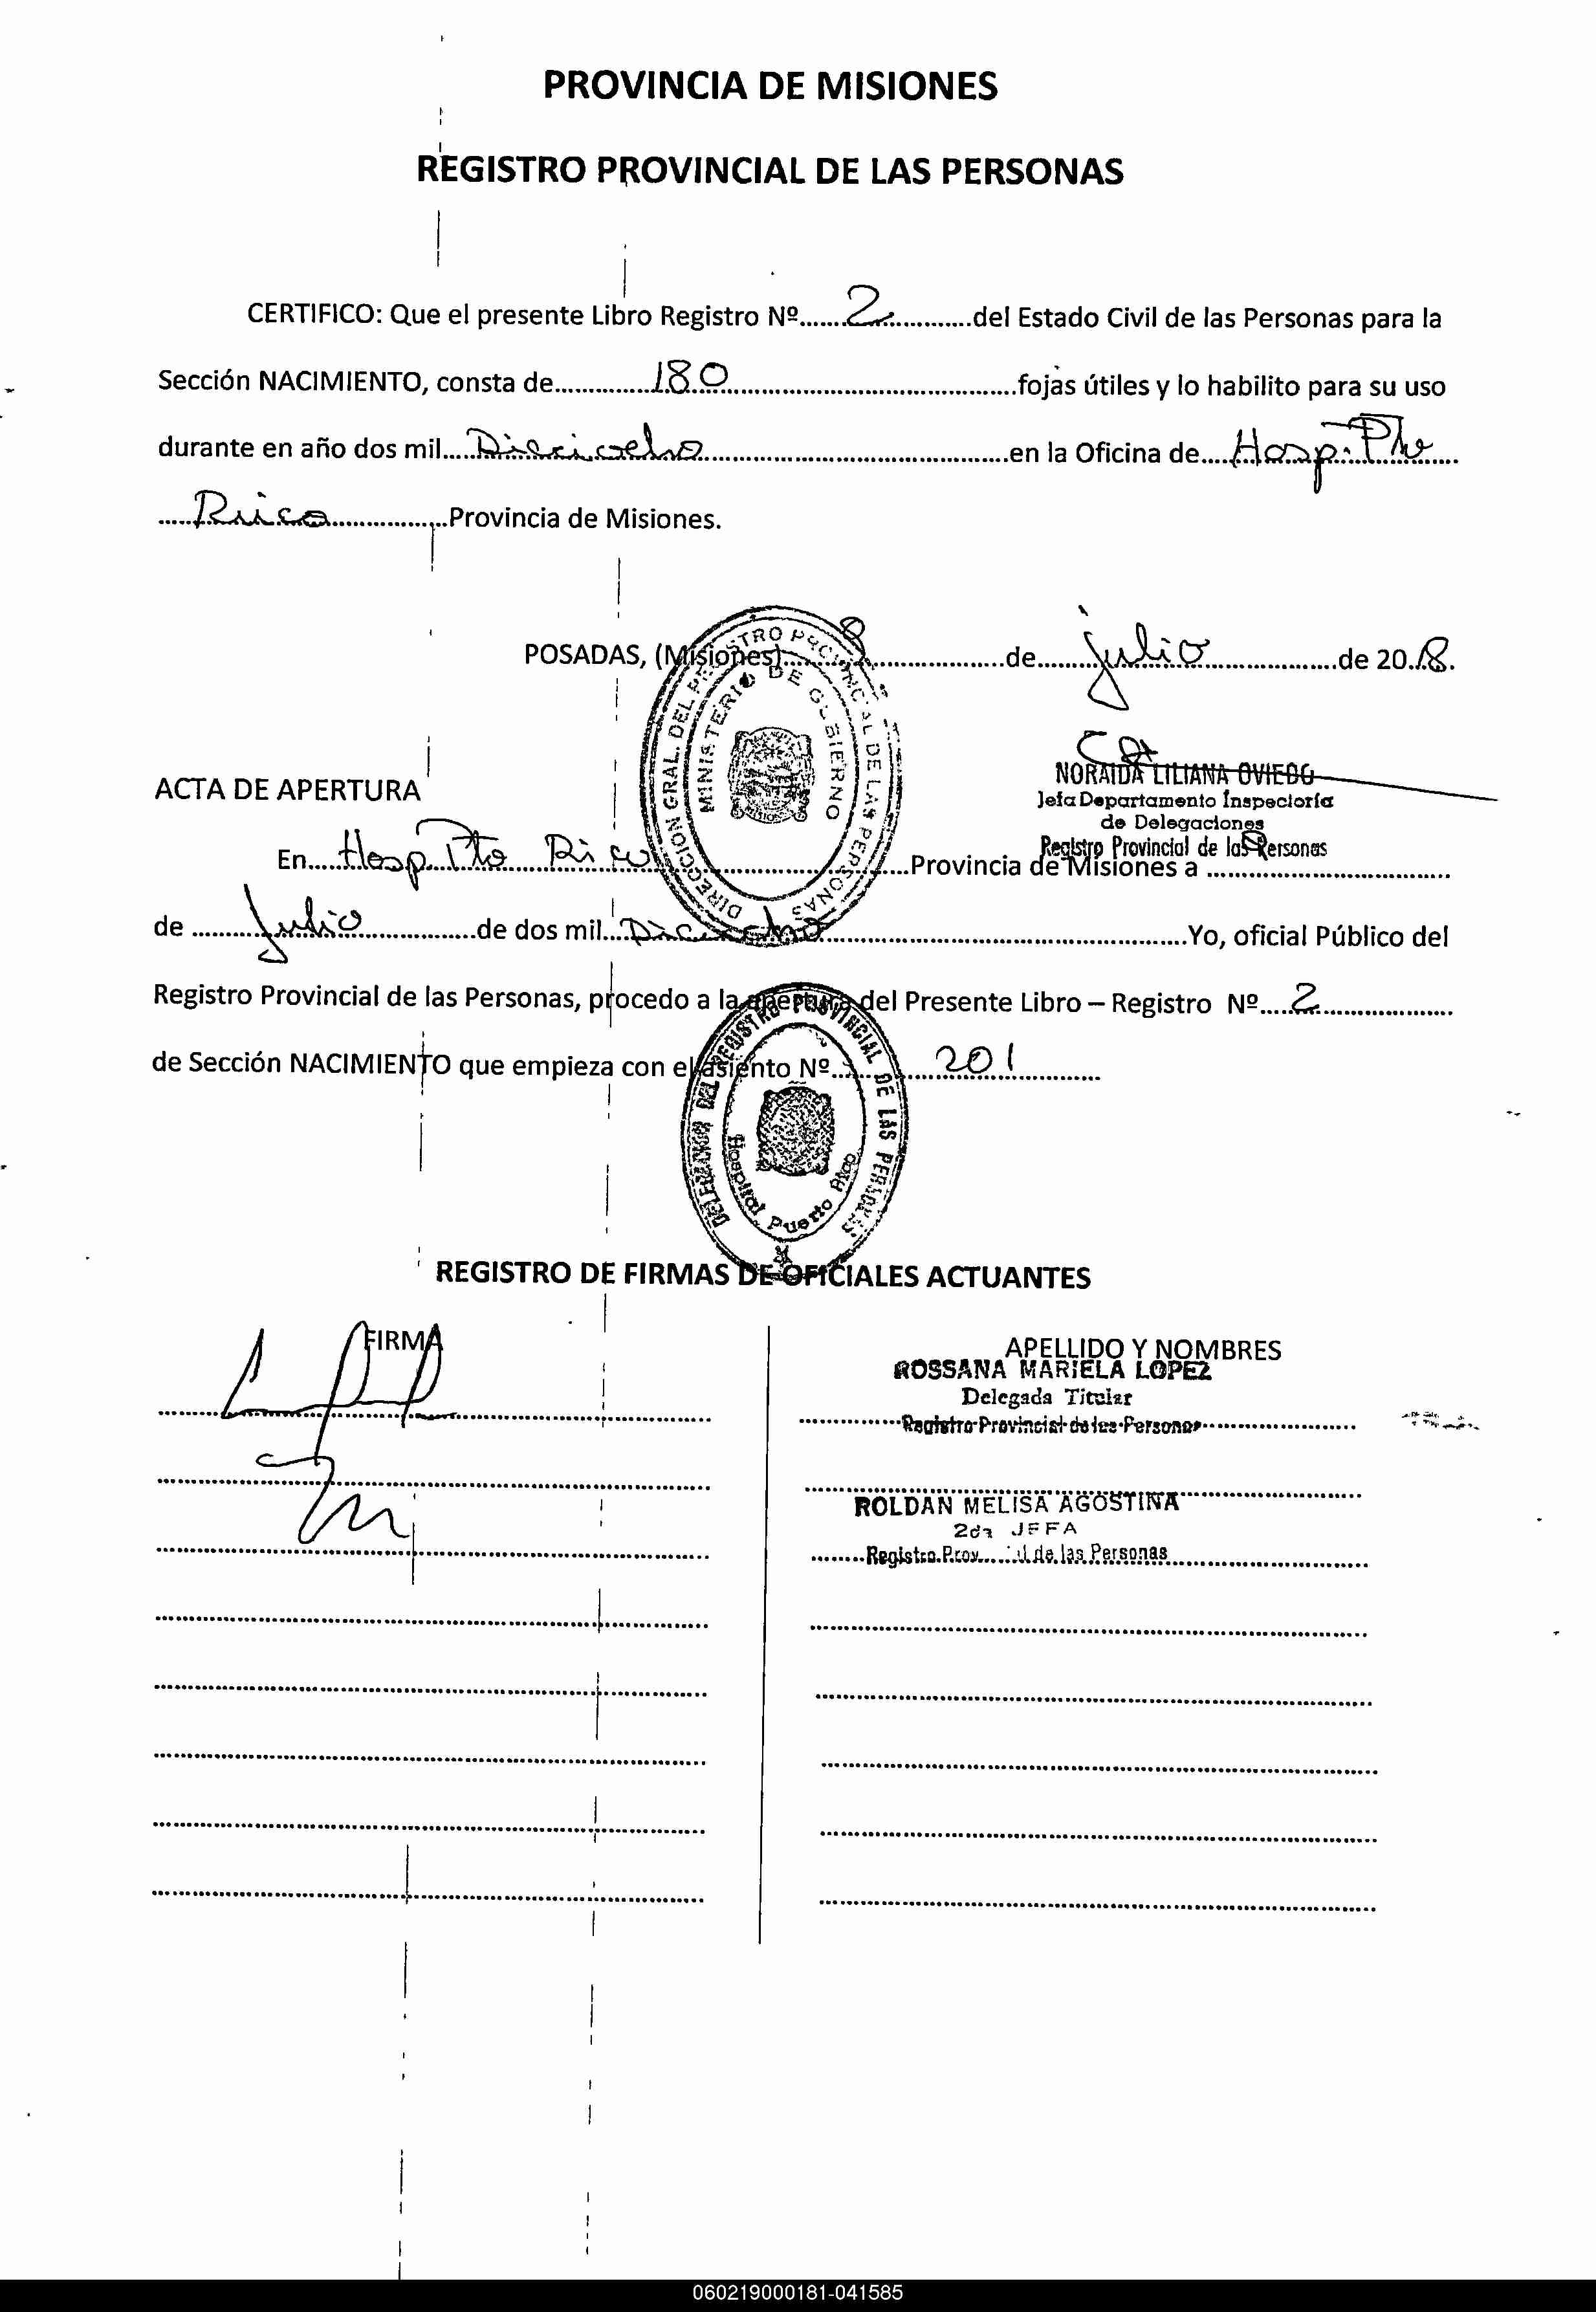 PROVINCIA DE MISIONES
REGISTRO PROVINCIAL DE LAS PERSONAS
CERTIFICO: Que el presente Libro Registro Nº......2............del Estado Civil de las Personas para la
Sección NACIMIENTO, consta de.............180.......................................fojas útiles y lo habilito para su uso
durante en año dos mil.....Dieciocho.........................................en la Oficina de....Hosp. Pto
.....Rico................Provincia de Misiones.
POSADAS, (Misiones)..........8...............de........julio...............de 20.18.
NORAIDA LILIANA OVIEDO
Jefa Departamento Inspectoría
de Delegaciones
Registro Provincial de las Personas
DIRECCION GRAL. DEL REGISTRO PROVINCIAL DE LAS PERSONAS
MINISTERIO DE GOBIERNO
MISIONES
ACTA DE APERTURA
En.....Hosp. Pto Rico..........................Provincia de Misiones a ..................8...........
de ..........Julio................de dos mil....Dieciocho.............................................Yo, oficial Público del
Registro Provincial de las Personas, procedo a la apertura del Presente Libro – Registro Nº.....2...................
de Sección NACIMIENTO que empieza con el asiento Nº............201............
DELEGACION DEL REGISTRO PROVINCIAL DE LAS PERSONAS
Hospital Puerto Rico
REGISTRO DE FIRMAS DE OFICIALES ACTUANTES
FIRMA
APELLIDO Y NOMBRES
ROSSANA MARIELA LOPEZ
Delegada Titular
Registro Provincial de las Personas
ROLDAN MELISA AGOSTINA
2da JEFA
Registro Prov...... de las Personas
060219000181-041585